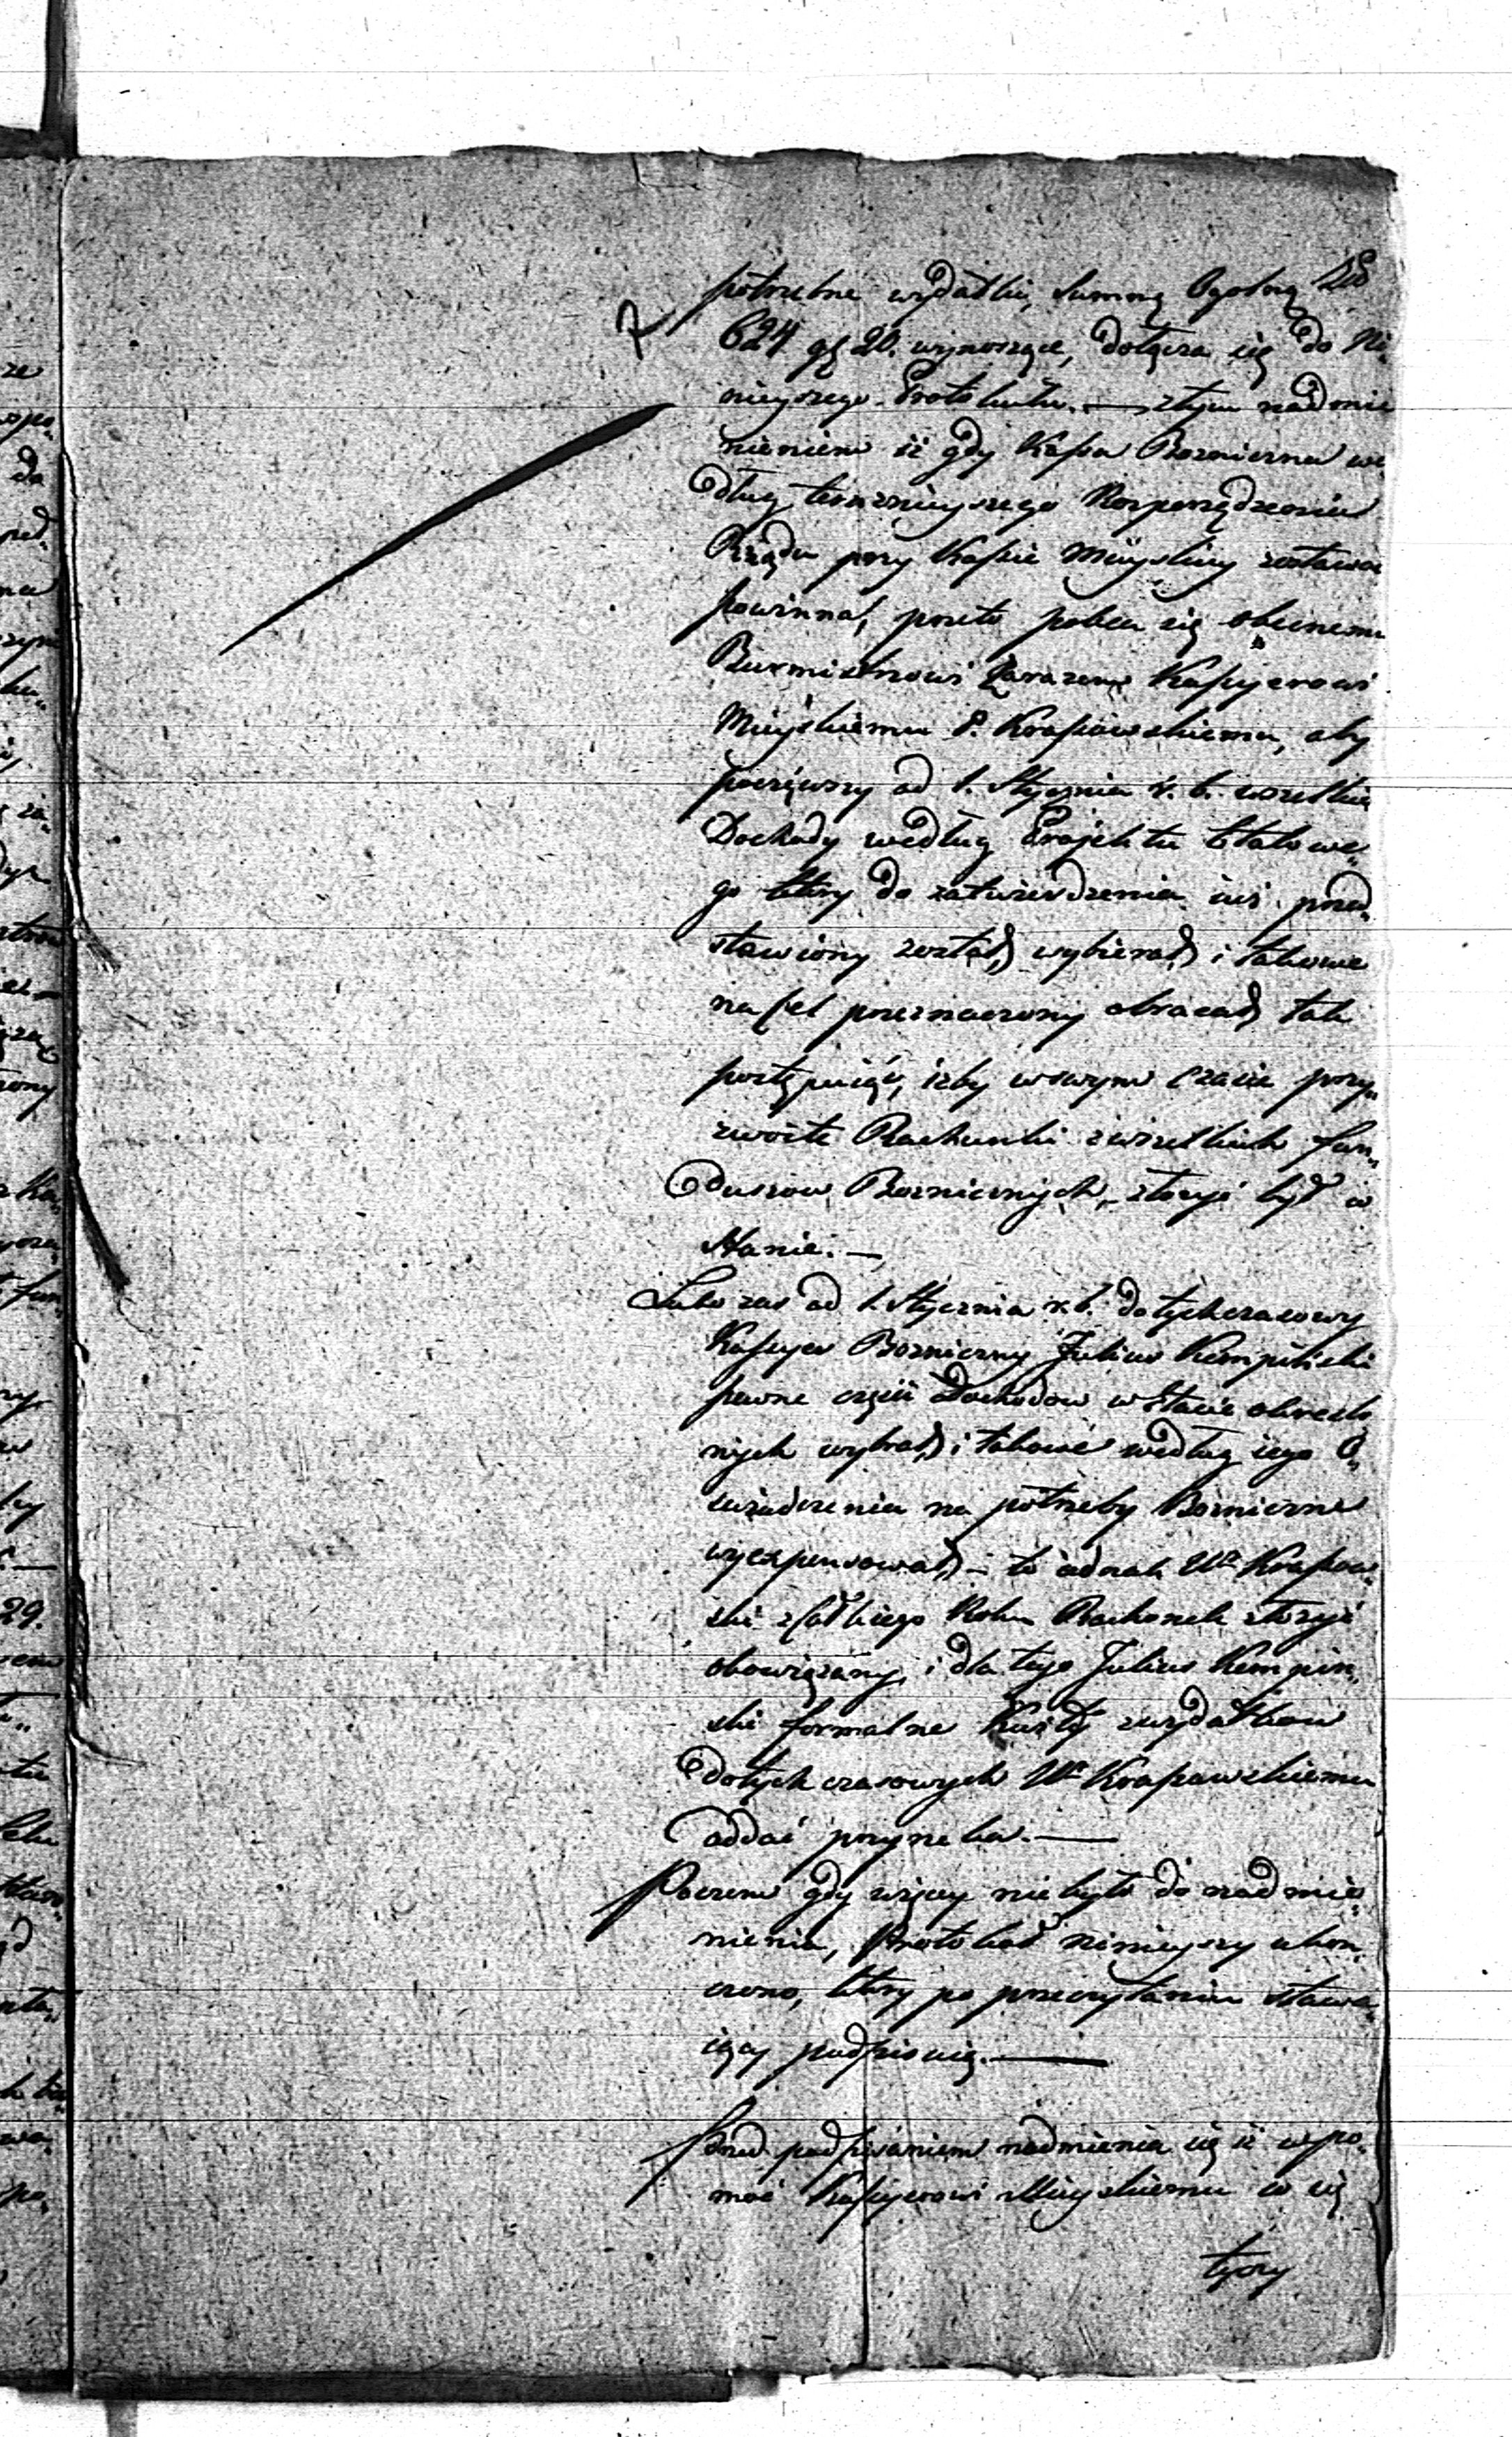 potrzebne wydatki, Summę Ogolną
624 gr 20. wynoszące, dołącza się do Ni„
nieyszego Protokułu. — ztym nadmie
nieniem iż gdy Kassa Bozniczna we
dług teraznieyszego Rozporządzenia
Rządu przy Kassie Mieyskiey zostawać
powinna, przeto poleca się obecnemu
Burmistrzowi zarazem Kassyerowi
Mieyskiemu P. Krassowskiemu, aby
począwszy od 1. Stycznia r. b. wszelkie
Dochody według Projektu Etatowe„
go który do zatwierdzenia iuż przed„
stawiony został, wybierał i takowe
na cel przeznaczony obracał, tak
postępuiąc, iżby w swym czasie przy„
zwoite Rachunki z wszelkich fun„
duszow Bozniczych, złożyć był w
Stanie. —
Lubo zas od 1. Stycznia r. b. dotychczasowy
Kassyer Bozniczny Julius Kempinski
pewne częśći Dochodow w Etacie okreslo
nych wybrał, i takowe według iego O„
swiadczenia na potrzeby Boznicze
wyexpensował, — to iednak Wn Krassow„
ski z całkiego Roku Rachunek złożyć
obowiązany, i dla tego Julius Kempin„
ski formalne Kwity z wydatkow
dotychczasowych Wn Krassowskiemu
oddać przyrzeka. —
Poczem gdy więcey nie było do nadmie„
nienia, Protokuł ninieyszy ukon„
czono, który po przeczytaniu stawa„
iący podpisuią. —
Przed podpisaniem nadmienia się iż w po„
moc Kassyerowi Mieyskiemu w się
tyczy